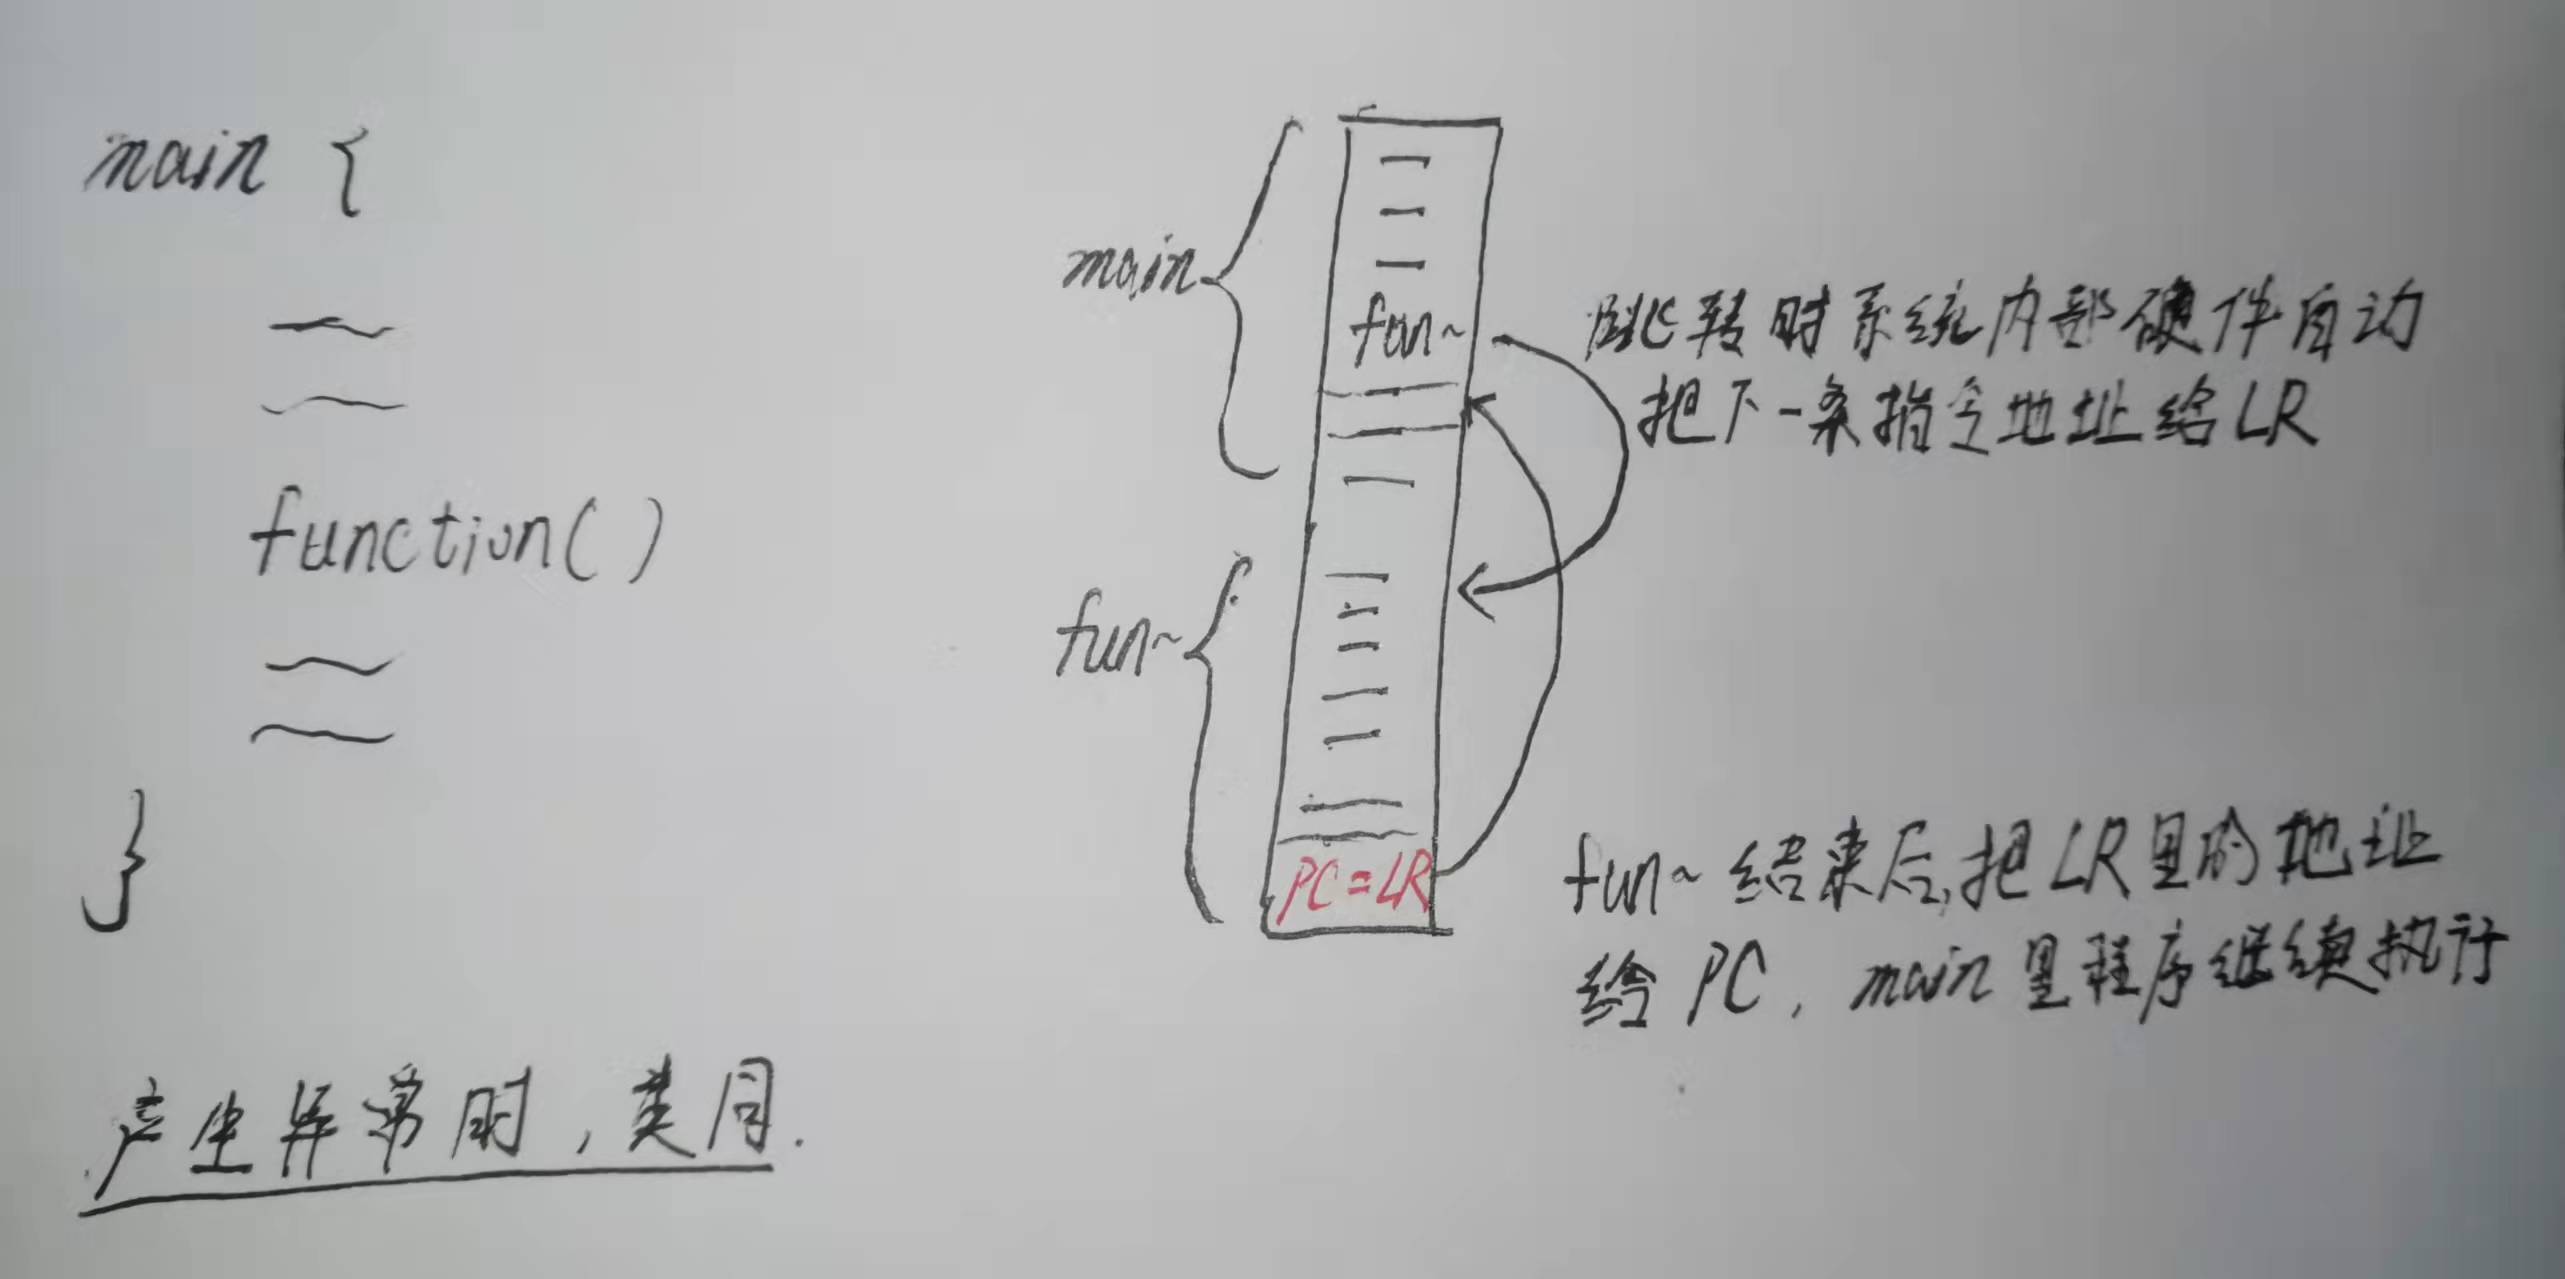 main {
function()
}
产生异常时,类同.
main
fun~
fun~
PC=LR
跳转时系统内部硬件自动
把下一条指令地址给LR
fun~结束后,把LR里的地址
给PC,main里程序继续执行